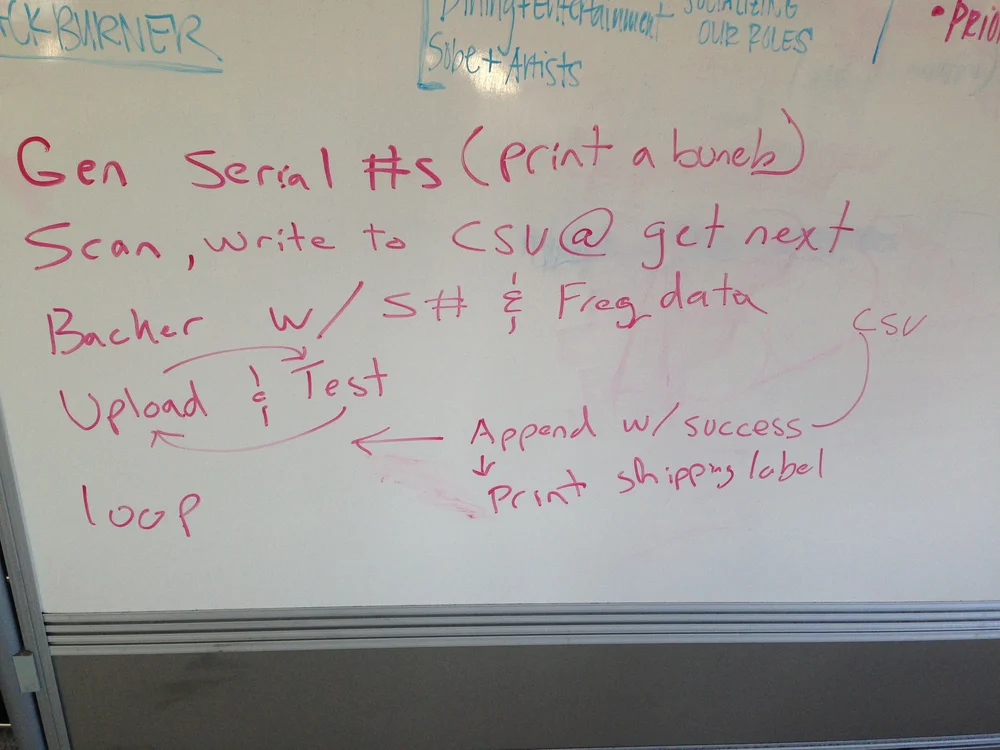 CKBURNER
Dining + Entertainment
Sobe + Artists
SOCIALIZING
OUR ROLES
• PRIO
Gen Serial #s (print a bunch)
Scan, write to CSV @ get next
Backer w/ S# & Freq data
Upload & Test
CSV
Append w/ success
Print shippng label
loop